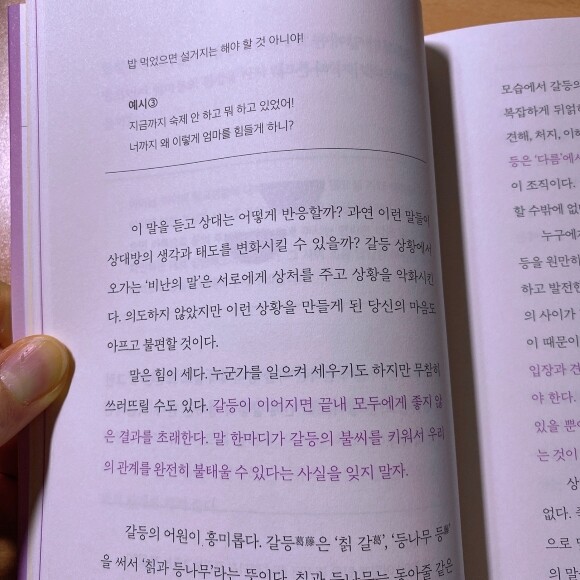 밥 먹었으면 설거지는 해야 할 것 아니야!
예시③
지금까지 숙제 안 하고 뭐 하고 있었어!
너까지 왜 이렇게 엄마를 힘들게 하니?
이 말을 듣고 상대는 어떻게 반응할까? 과연 이런 말들이
상대방의 생각과 태도를 변화시킬 수 있을까? 갈등 상황에서
오가는 ‘비난의 말’은 서로에게 상처를 주고 상황을 악화시킨
다. 의도하지 않았지만 이런 상황을 만들게 된 당신의 마음도
아프고 불편할 것이다.
말은 힘이 세다. 누군가를 일으켜 세우기도 하지만 무참히
쓰러뜨릴 수도 있다. 갈등이 이어지면 끝내 모두에게 좋지 않
은 결과를 초래한다. 말 한마디가 갈등의 불씨를 키워서 우리
의 관계를 완전히 불태울 수 있다는 사실을 잊지 말자.
갈등의 어원이 흥미롭다. 갈등葛藤은 ‘칡 갈葛’, ‘등나무 등藤’
을 써서 ‘칡과 등나무’라는 뜻이다. 칡과 등나무는 동아줄 같은
모습에서 갈등의
복잡하게 뒤얽
견해, 처지, 이해
등은 ‘다름’에서
이 조직이다.
할 수밖에 없
누구에게
등을 원만하
하고 발전한
의 사이가
이 때문이
입장과 견
야 한다.
있을 뿐이
는 것이
상
없다.
으로 더
의 말